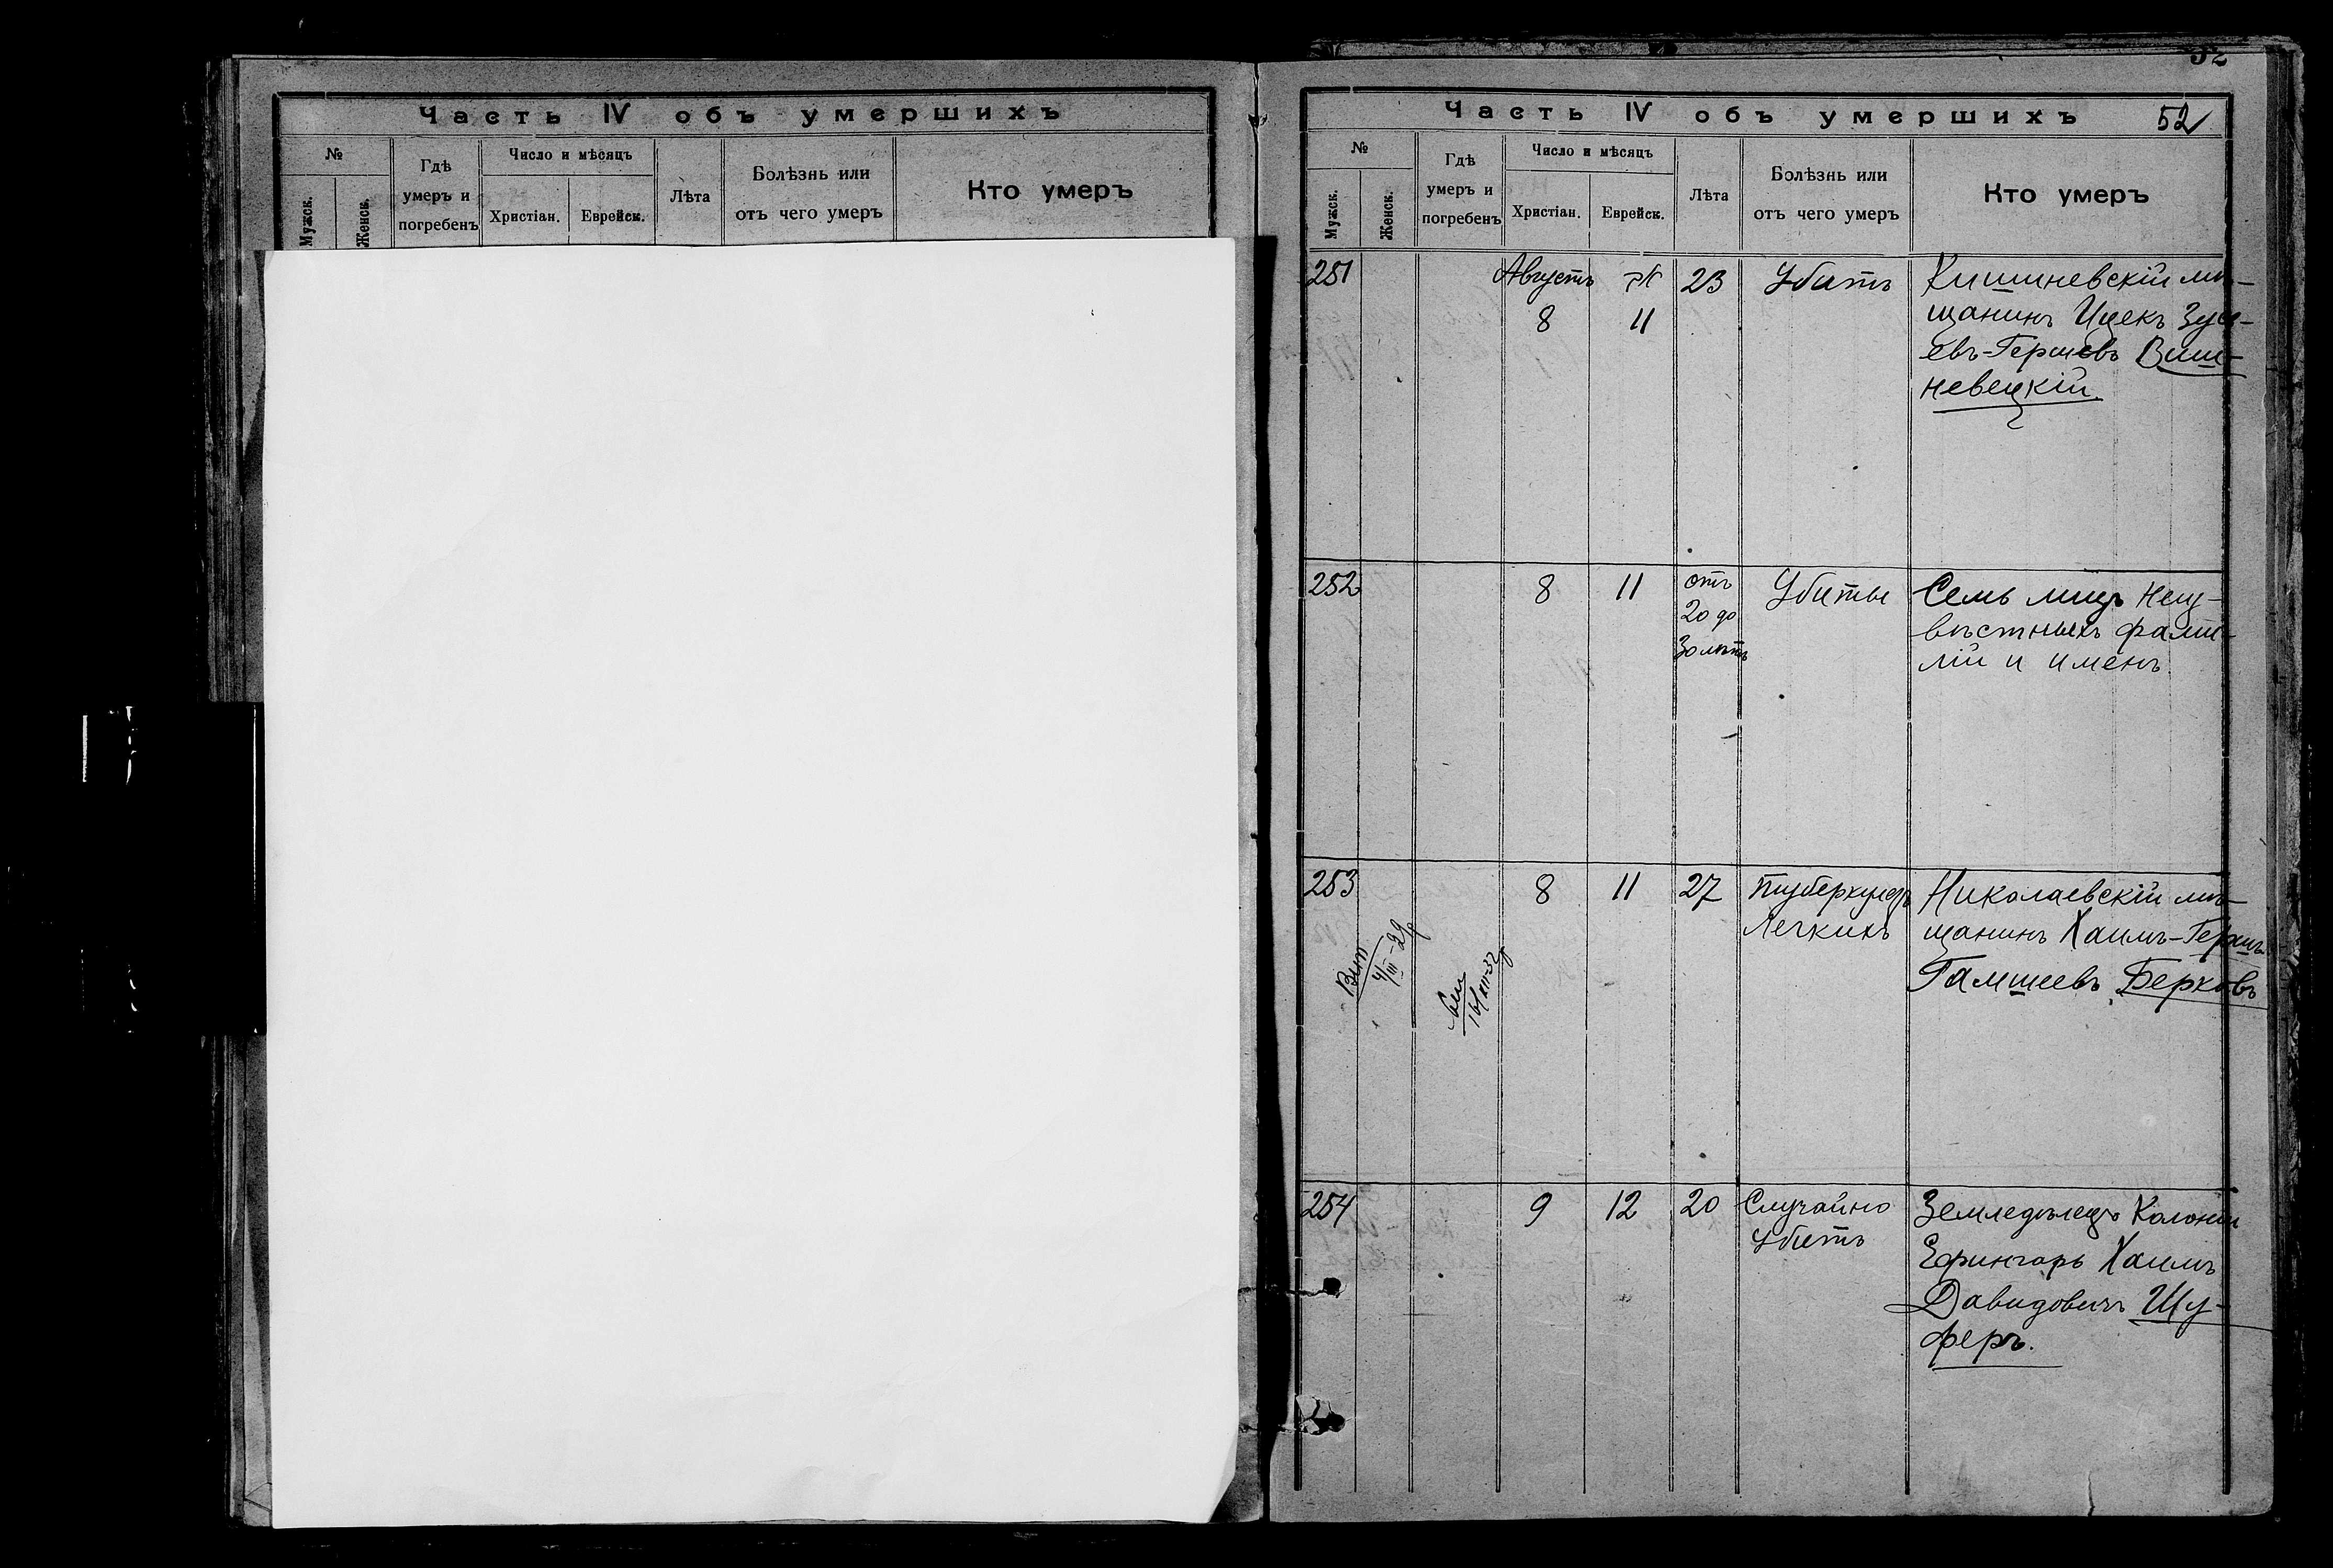 Часть IV объ умершихъ
№
Мужск.
Женск.
Гдѣ
умеръ и
погребенъ
Число и мѣсяцъ
Христіан.
Еврейск.
Лѣта
Болѣзнь или
отъ чего умеръ
Кто умеръ
52
Часть IV объ умершихъ
52
№
Мужск.
Женск.
Гдѣ
умеръ и
погребенъ
Число и мѣсяцъ
Христіан.
Еврейск.
Лѣта
Болѣзнь или
отъ чего умеръ
Кто умеръ
251
Августъ
8
אב
11
23
Убитъ
Кишиневскій мѣ-
щанинъ Ицекъ
евъ-Гершевъ Виш-
невецкій.
252
8
11
отъ
20 до
30 лѣтъ
Убиты
Семь лицъ неиз-
вѣстныхъ фами-
лій и именъ.
253
8
11
27
туберкулезъ
легкихъ
Николаевскій мѣ-
щанинъ Хаимъ-Гершъ
Гамшеевъ Берковъ
254
9
12
20
Случайно
убитъ
Земледѣлецъ Колоніи
Ефингарь Хаимъ
Давидовичъ Шу-
феръ.